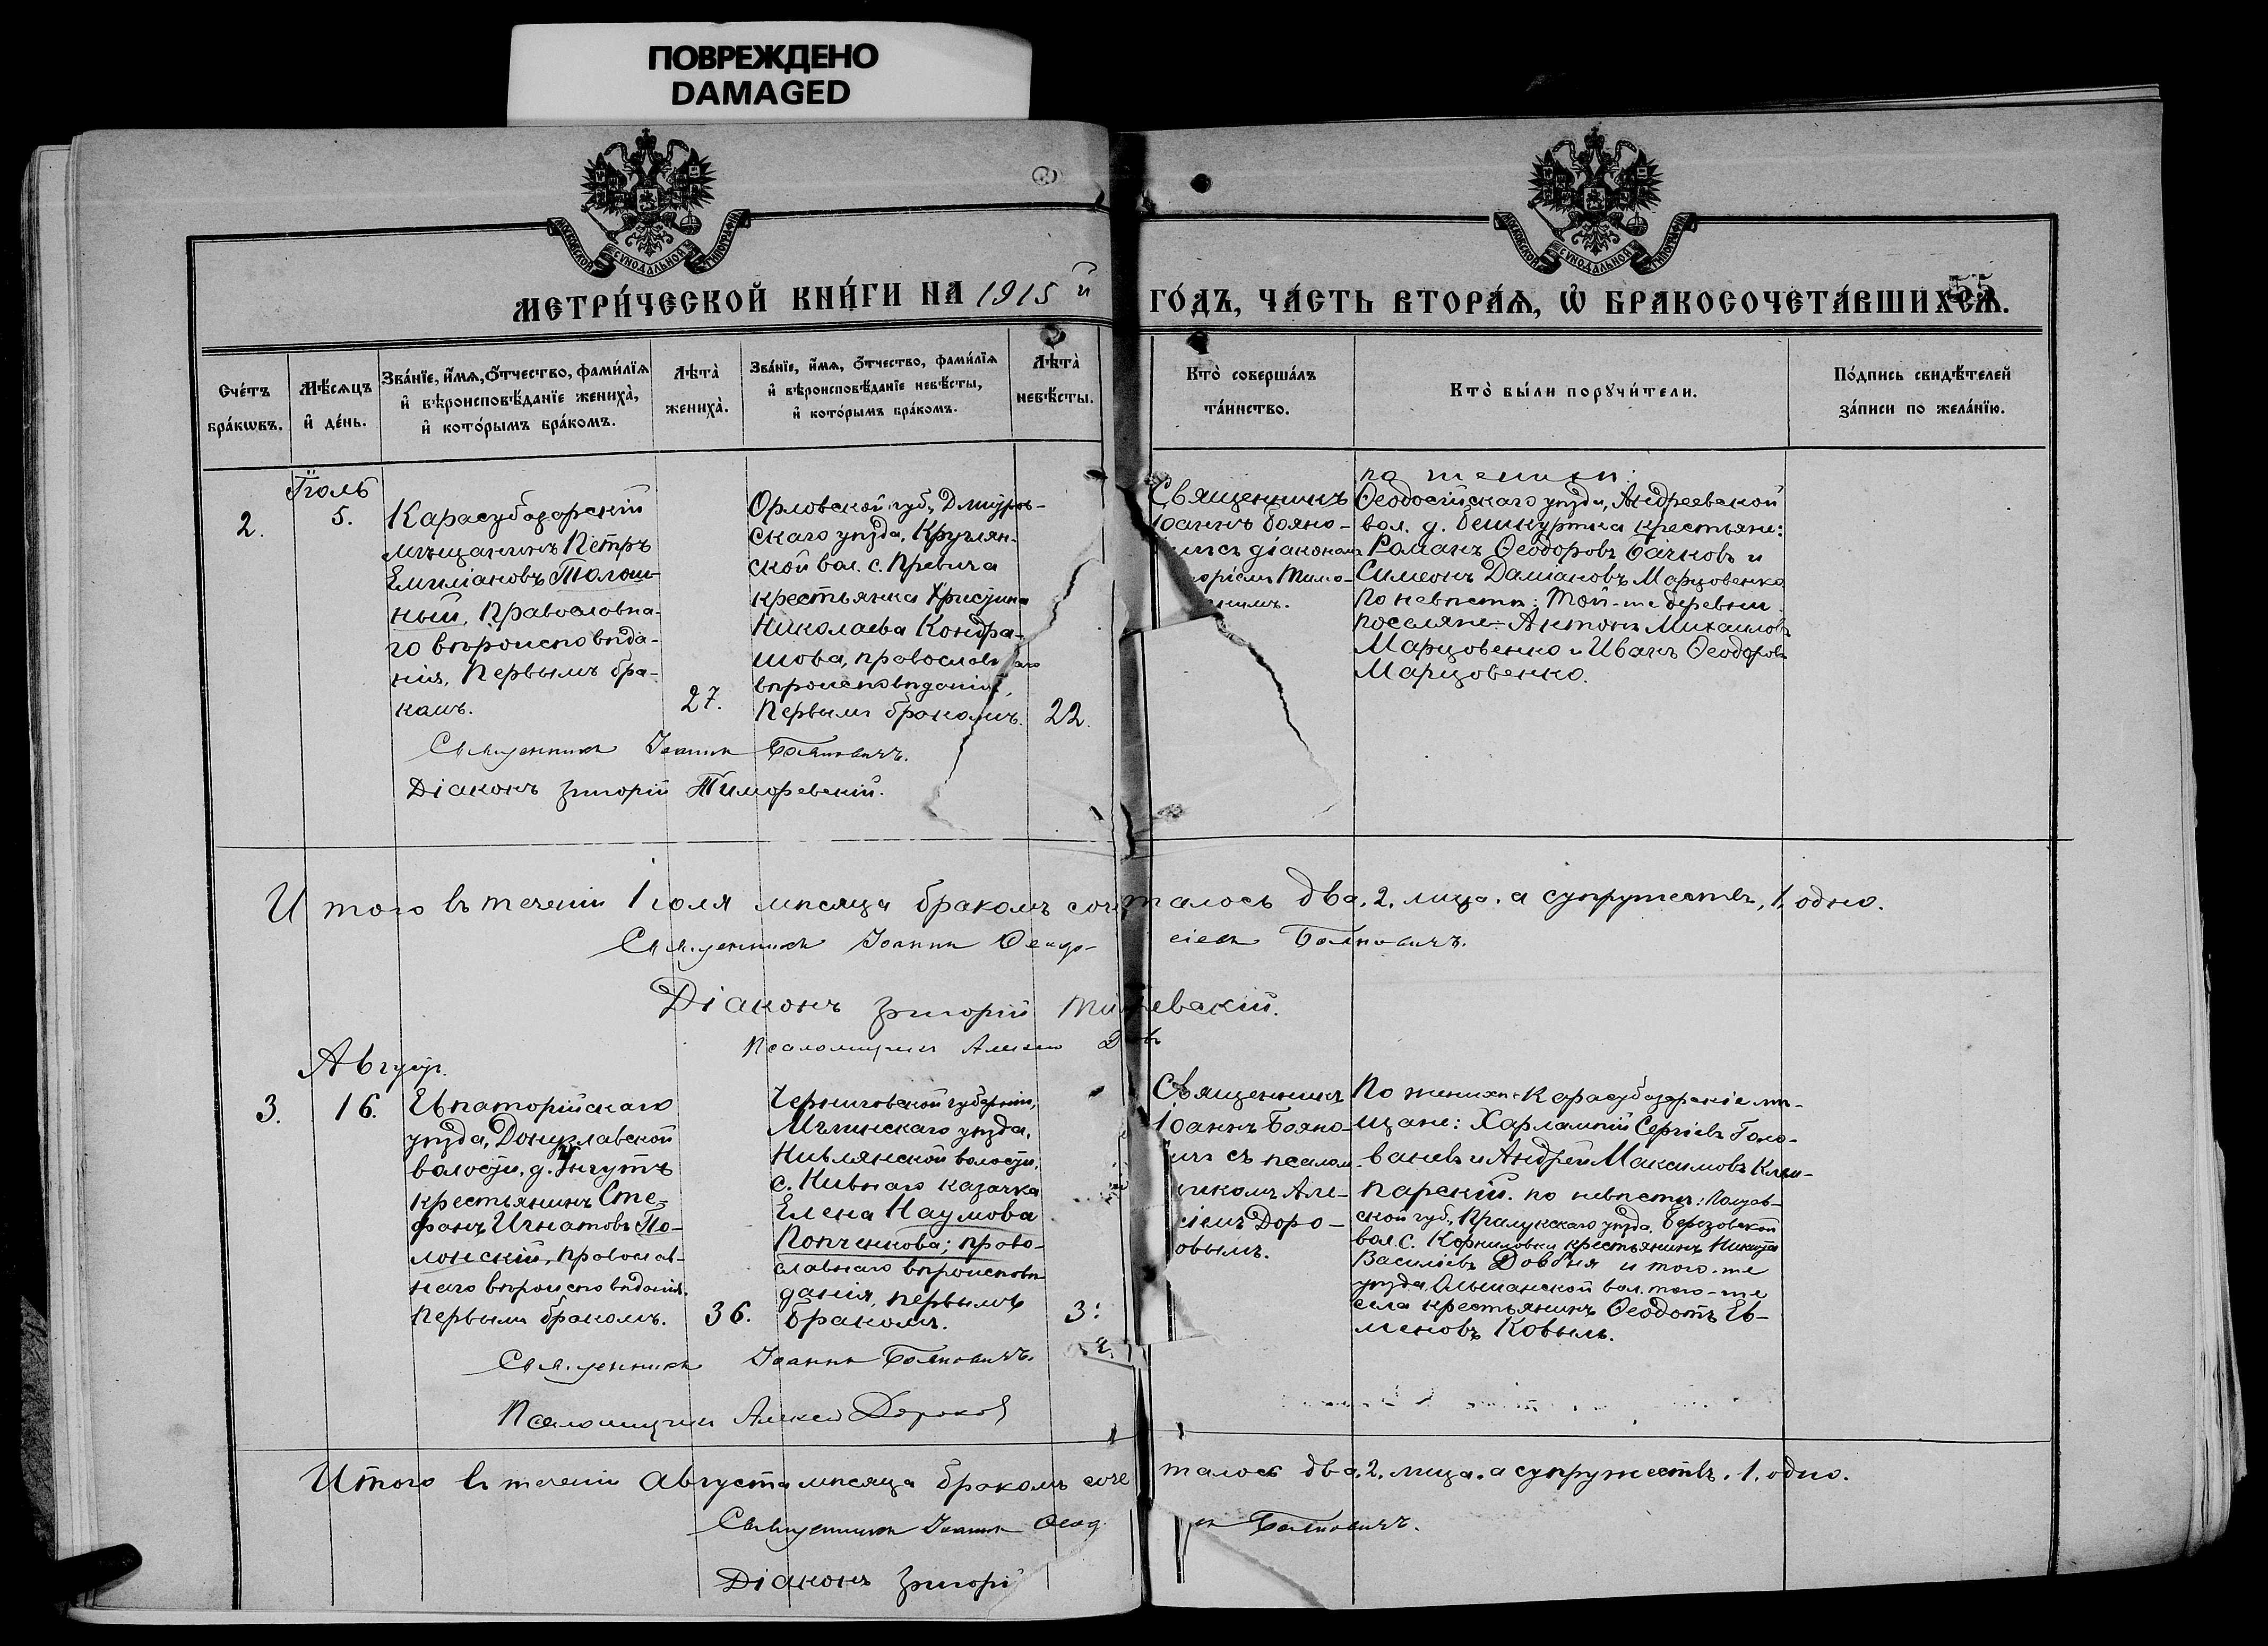 ПОВРЕЖДЕНО
DAMAGED
МОСКОВСКОЙ СѴНОДАЛЬНОЙ ТИПОГРАФІИ
МОСКОВСКОЙ СѴНОДАЛЬНОЙ ТИПОГРАФІИ
55
МЕТРИ́ЧЕСКОЙ КНИ́ГИ НА 1915 й
ГО́ДЪ, ЧА́СТЬ ВТОРА́Ѧ, Ѡ БРАКОСОЧЕТА́ВШИХСѦ.
Сче́тъ
бра́кѡвъ.
Мѣ́сяцъ
и де́нь.
Зва́нїе, и́мѧ, ѻ́тчество, фами́лїѧ
и вѣроисповѣ́данїе жениха̀,
и кото́рымъ бра́комъ.
Лѣта̀
жениха̀.
Зва́нїе, и́мѧ, ѻ́тчество, фами́лїѧ
и вѣроисповѣ́данїе невѣ́сты,
и кото́рымъ бра́комъ.
Лѣта̀
невѣ́сты.
Кто̀ соверша́лъ
та́инство.
Кто̀ бы́ли порꙋчи́тели.
По́дпись свидѣ́телей
за́писи по жела́нїю.
2.
Іюль
5.
Карасубазарскій
мѣщанинъ Петръ
Емиліановъ Толош-
ный, православна-
го вѣроисповѣда-
нія, первымъ бра-
комъ.
27.
Орловской губ., Дмитров-
скаго уѣзда, Круглян-
ской вол. с. Превича
крестьянка Христина
Николаева Кондра-
шова, православнаго
вѣроисповѣданія,
первымъ бракомъ.
22.
Священникъ
Іоаннъ Бояно-
съ діакономъ
Тимо-
по женихѣ:
Ѳеодосійскаго уѣзда, Андреевской
вол. д. Бешкуртка крестьяне:
Романъ Ѳеодоровъ Бачковъ и
Симеонъ Даміановъ Марцовенко
по невѣстѣ: той-же деревни
поселяне: Антонъ Михаиловъ
Марцовенко и Иванъ Ѳеодоровъ
Марцовенко.
Священникъ Іоаннъ Бояновичъ.
Діаконъ Григорій Тиморевскій.
Итого въ теченіи Іюля мѣсяца бракомъ сочеталось два, 2, лица, а супружествъ, 1, одно.
Священникъ Іоаннъ Ѳеодосіевъ Бояновичъ.
Діаконъ Григорій Тиморевскій.
Псаломщикъ Алексій
3.
Августъ.
16.
Евпаторійскаго
уѣзда, Донузлавской
волости, д.
крестьянинъ Сте-
фанъ Игнатовъ По-
лонскій, православ-
наго вѣроисповѣданія.
первымъ бракомъ.
36.
Черниговской губерніи,
Мглинскаго уѣзда,
Нивлянской волости,
с. Нивнаго казачка
Елена Наумова
Попченкова; право-
славнаго вѣроисповѣ-
данія, первымъ
бракомъ.
3
Священникъ
Іоаннъ Бояно-
съ псалом-
Але-
Доро-
овымъ.
По женихѣ: Карасубазарскіе мѣ-
щане: Харлампій Сергіевъ Голо-
ваневъ и Андрей Максимовъ Кля-
парскій. по невѣстѣ: Полтав-
ской губ., Прилукскаго уѣзда, Березовской
вол. с. Корниловки крестьянинъ Никита
Василіевъ Довбня и того-же
уѣзда Ольшанской вол. того-же
села крестьянинъ Ѳеодотъ Ев-
меновъ Ковыль.
Священникъ Іоаннъ Бояновичъ.
Псаломщикъ Алексій Дороховъ
Итого въ теченіи Августа мѣсяца бракомъ сочеталось два, 2, лица, а супружествъ, 1, одно.
Священникъ Іоаннъ Ѳеод Бояновичъ.
Діаконъ Григорій